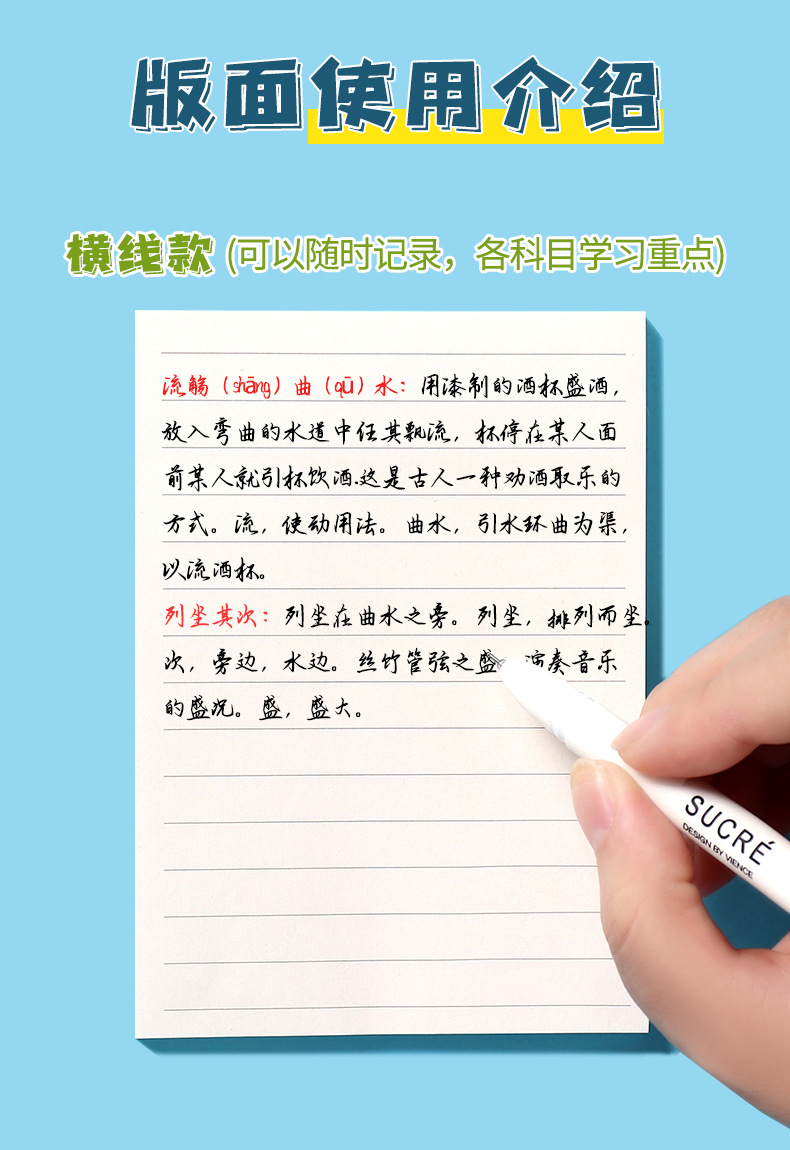 版面使用介绍
横线款 (可以随时记录，各科目学习重点)
流觞（shāng）曲（qū）水：用漆制的酒杯盛酒，
放入弯曲的水道中任其飘流，杯停在某人面
前某人就引杯饮酒.这是古人一种劝酒取乐的
方式。流，使动用法。曲水，引水环曲为渠，
以流酒杯。
列坐其次：列坐在曲水之旁。列坐，排列而坐。
次，旁边，水边。丝竹管弦之盛 演奏音乐
的盛况。盛，盛大。
SUCRÉ
DESIGN BY VIENCE